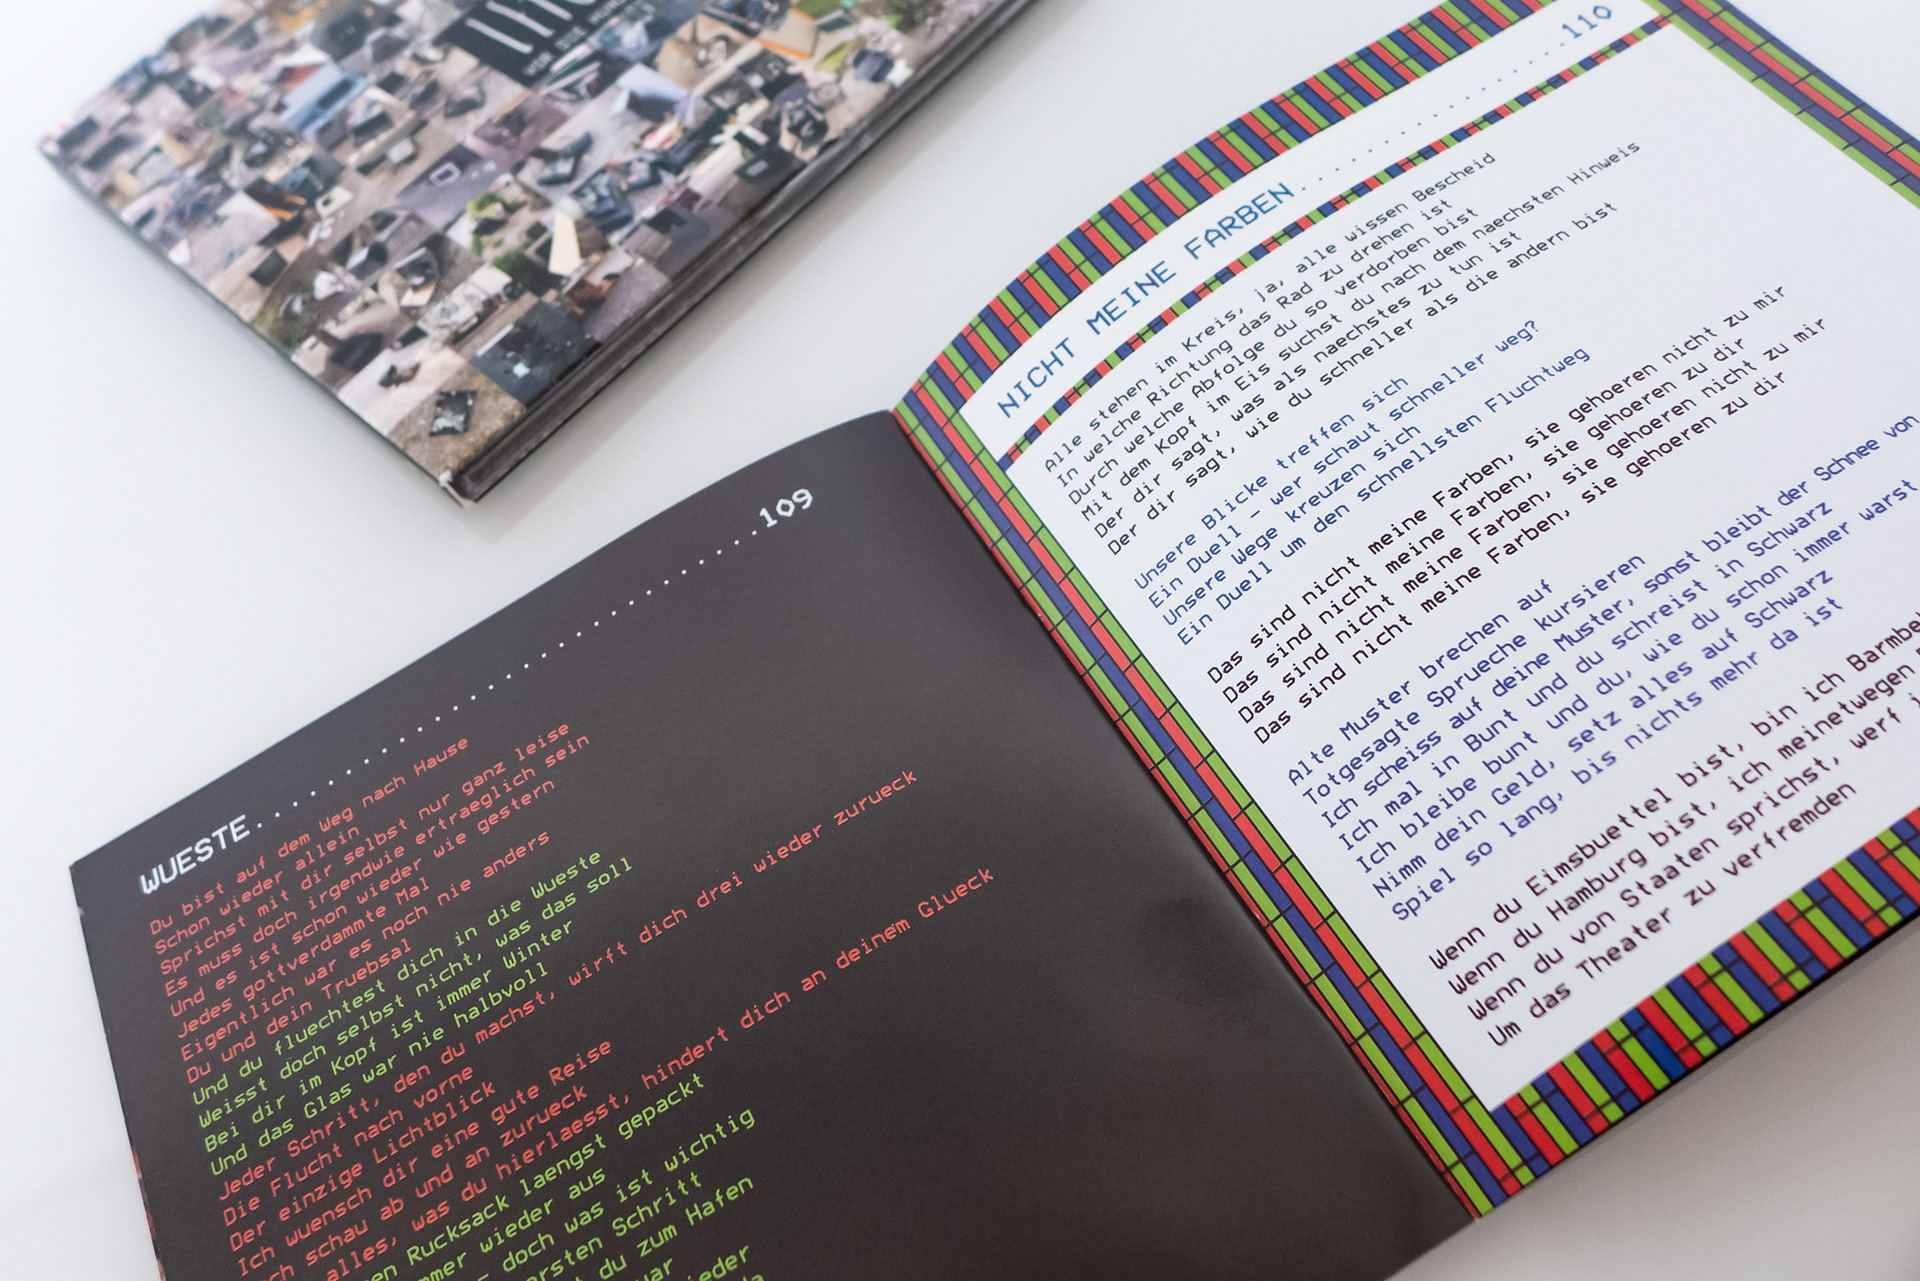 VOR DIE HUN
WUESTE.......................................109
Du bist auf dem Weg nach Hause
Schon wieder allein
Sprichst mit dir selbst nur ganz leise
Es muss doch irgendwie ertraeglich sein
Und es ist schon wieder wie gestern
Jedes gottverdammte Mal
Eigentlich war es noch nie anders
Du und dein Truebsal
Und du fluechtest dich in die Wueste
Weisst doch selbst nicht, was das soll
Bei dir im Kopf ist immer Winter
Und das Glas war nie halbvoll
Jeder Schritt, den du machst, wirft dich drei wieder zurueck
Die Flucht nach vorne
Der einzige Lichtblick
Ich wuensch dir eine gute Reise
ch schau ab und an zurueck
alles, was du hierlaesst, hindert dich an deinem Glueck
en Rucksack laengst gepackt
mmer wieder aus
– doch was ist wichtig
ersten Schritt
du zum Hafen
war
ieder
NICHT MEINE FARBEN....................110
Alle stehen im Kreis, ja, alle wissen Bescheid
In welche Richtung das Rad zu drehen ist
Durch welche Abfolge du so verdorben bist
Mit dem Kopf im Eis suchst du nach dem naechsten Hinweis
Der dir sagt, was als naechstes zu tun ist
Der dir sagt, wie du schneller als die andern bist
Unsere Blicke treffen sich
Ein Duell – wer schaut schneller weg?
Unsere Wege kreuzen sich
Ein Duell um den schnellsten Fluchtweg
Das sind nicht meine Farben, sie gehoeren nicht zu mir
Das sind nicht meine Farben, sie gehoeren zu dir
Das sind nicht meine Farben, sie gehoeren nicht zu mir
Das sind nicht meine Farben, sie gehoeren zu dir
Alte Muster brechen auf
Totgesagte Sprueche kursieren
Ich scheiss auf deine Muster, sonst bleibt der Schnee von
Ich mal in Bunt und du schreist in Schwarz
Ich bleibe bunt und du, wie du schon immer warst
Nimm dein Geld, setz alles auf Schwarz
Spiel so lang, bis nichts mehr da ist
Wenn du Eimsbuettel bist, bin ich Barmbe
Wenn du Hamburg bist, ich meinetwegen
Wenn du von Staaten sprichst, werf i
Um das Theater zu verfremden